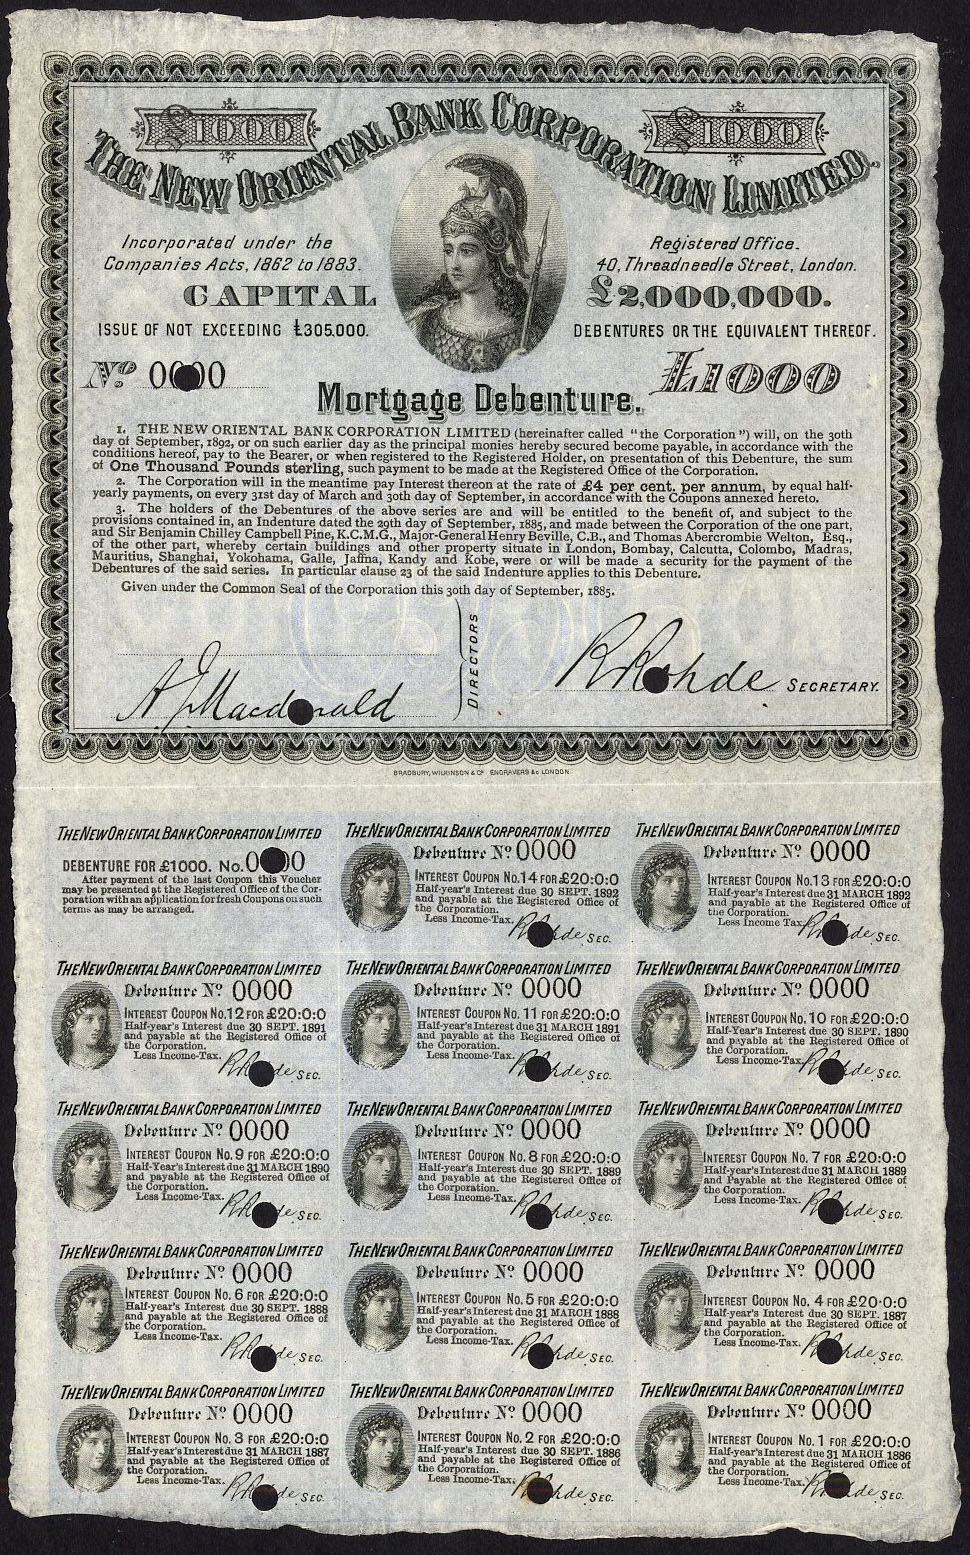 £1000
£1000
THE NEW ORIENTAL BANK CORPORATION LIMITED.
Incorporated under the
Companies Acts, 1862 to 1883.
Registered Office.
40, Threadneedle Street, London.
CAPITAL £2,000,000.
ISSUE OF NOT EXCEEDING £305.000. DEBENTURES OR THE EQUIVALENT THEREOF.
No. 0000
£1000
Mortgage Debenture.
1. THE NEW ORIENTAL BANK CORPORATION LIMITED (hereinafter called "the Corporation") will, on the 30th
day of September, 1892, or on such earlier day as the principal monies hereby secured become payable, in accordance with the
conditions hereof, pay to the Bearer, or when registered to the Registered Holder, on presentation of this Debenture, the sum
of One Thousand Pounds sterling, such payment to be made at the Registered Office of the Corporation.
2. The Corporation will in the meantime pay Interest thereon at the rate of £4 per cent. per annum, by equal half-
yearly payments, on every 31st day of March and 30th day of September, in accordance with the Coupons annexed hereto.
3. The holders of the Debentures of the above series are and will be entitled to the benefit of, and subject to the
provisions contained in, an Indenture dated the 29th day of September, 1885, and made between the Corporation of the one part,
and Sir Benjamin Chilley Campbell Pine, K.C.M.G., Major-General Henry Beville, C.B., and Thomas Abercrombie Welton, Esq.,
of the other part, whereby certain buildings and other property situate in London, Bombay, Calcutta, Colombo, Madras,
Mauritius, Shanghai, Yokohama, Galle, Jaffna, Kandy and Kobe, were or will be made a security for the payment of the
Debentures of the said series. In particular clause 23 of the said Indenture applies to this Debenture.
Given under the Common Seal of the Corporation this 30th day of September, 1885.
DIRECTORS
A J Macdonald
R Rohde SECRETARY.
BRADBURY, WILKINSON & Co ENGRAVERS &c LONDON
THE NEW ORIENTAL BANK CORPORATION LIMITED
DEBENTURE FOR £1000. No. 0000
After payment of the last Coupon this Voucher
may be presented at the Registered Office of the Cor-
poration with an application for fresh Coupons on such
terms as may be arranged.
THE NEW ORIENTAL BANK CORPORATION LIMITED
Debenture No. 0000
INTEREST COUPON No. 14 FOR £20:0:0
Half-year's Interest due 30 SEPT. 1892
and payable at the Registered Office of
the Corporation.
Less Income-Tax.
R Rohde SEC.
THE NEW ORIENTAL BANK CORPORATION LIMITED
Debenture No. 0000
INTEREST COUPON No. 13 FOR £20:0:0
Half-year's Interest due 31 MARCH 1892
and payable at the Registered Office of
the Corporation.
Less Income Tax.
R Rohde SEC.
THE NEW ORIENTAL BANK CORPORATION LIMITED
Debenture No. 0000
INTEREST COUPON No. 12 FOR £20:0:0
Half-year's Interest due 30 SEPT. 1891
and payable at the Registered Office of
the Corporation.
Less Income-Tax.
R Rohde SEC.
THE NEW ORIENTAL BANK CORPORATION LIMITED
Debenture No. 0000
INTEREST COUPON No. 11 FOR £20:0:0
Half-year's Interest due 31 MARCH 1891
and payable at the Registered Office of
the Corporation.
Less Income-Tax.
R Rohde SEC.
THE NEW ORIENTAL BANK CORPORATION LIMITED
Debenture No. 0000
INTEREST COUPON No. 10 FOR £20:0:0
Half-Year's Interest due 30 SEPT. 1890
and payable at the Registered Office of
the Corporation.
Less Income-Tax.
R Rohde SEC.
THE NEW ORIENTAL BANK CORPORATION LIMITED
Debenture No. 0000
INTEREST COUPON No. 9 FOR £20:0:0
Half-Year's Interest due 31 MARCH 1890
and payable at the Registered Office of
the Corporation.
Less Income-Tax.
R Rohde SEC.
THE NEW ORIENTAL BANK CORPORATION LIMITED
Debenture No. 0000
INTEREST COUPON No. 8 FOR £20:0:0
Half-year's Interest due 30 SEPT. 1889
and payable at the Registered Office of
the Corporation.
Less Income-Tax.
R Rohde SEC.
THE NEW ORIENTAL BANK CORPORATION LIMITED
Debenture No. 0000
INTEREST COUPON No. 7 FOR £20:0:0
Half-year's Interest due 31 MARCH 1889
and Payable at the Registered Office of
the Corporation.
Less Income-Tax.
R Rohde SEC.
THE NEW ORIENTAL BANK CORPORATION LIMITED
Debenture No. 0000
INTEREST COUPON No. 6 FOR £20:0:0
Half-year's Interest due 30 SEPT. 1888
and payable at the Registered Office of
the Corporation.
Less Income-Tax.
R Rohde SEC.
THE NEW ORIENTAL BANK CORPORATION LIMITED
Debenture No. 0000
INTEREST COUPON No. 5 FOR £20:0:0
Half-year's Interest due 31 MARCH 1888
and payable at the Registered Office of
the Corporation.
Less Income-Tax.
R Rohde SEC.
THE NEW ORIENTAL BANK CORPORATION LIMITED
Debenture No. 0000
INTEREST COUPON No. 4 FOR £20:0:0
Half-year's Interest due 30 SEPT. 1887
and payable at the Registered Office of
the Corporation.
Less Income-Tax.
R Rohde SEC.
THE NEW ORIENTAL BANK CORPORATION LIMITED
Debenture No. 0000
INTEREST COUPON No. 3 FOR £20:0:0
Half-year's Interest due 31 MARCH 1887
and payable at the Registered Office of
the Corporation.
Less Income-Tax.
R Rohde SEC.
THE NEW ORIENTAL BANK CORPORATION LIMITED
Debenture No. 0000
INTEREST COUPON No. 2 FOR £20:0:0
Half-year's Interest due 30 SEPT. 1886
and payable at the Registered Office of
the Corporation.
Less Income-Tax.
R Rohde SEC.
THE NEW ORIENTAL BANK CORPORATION LIMITED
Debenture No. 0000
INTEREST COUPON No. 1 FOR £20:0:0
Half-year's Interest due 31 MARCH 1886
and payable at the Registered Office of
the Corporation.
Less Income-Tax.
R Rohde SEC.